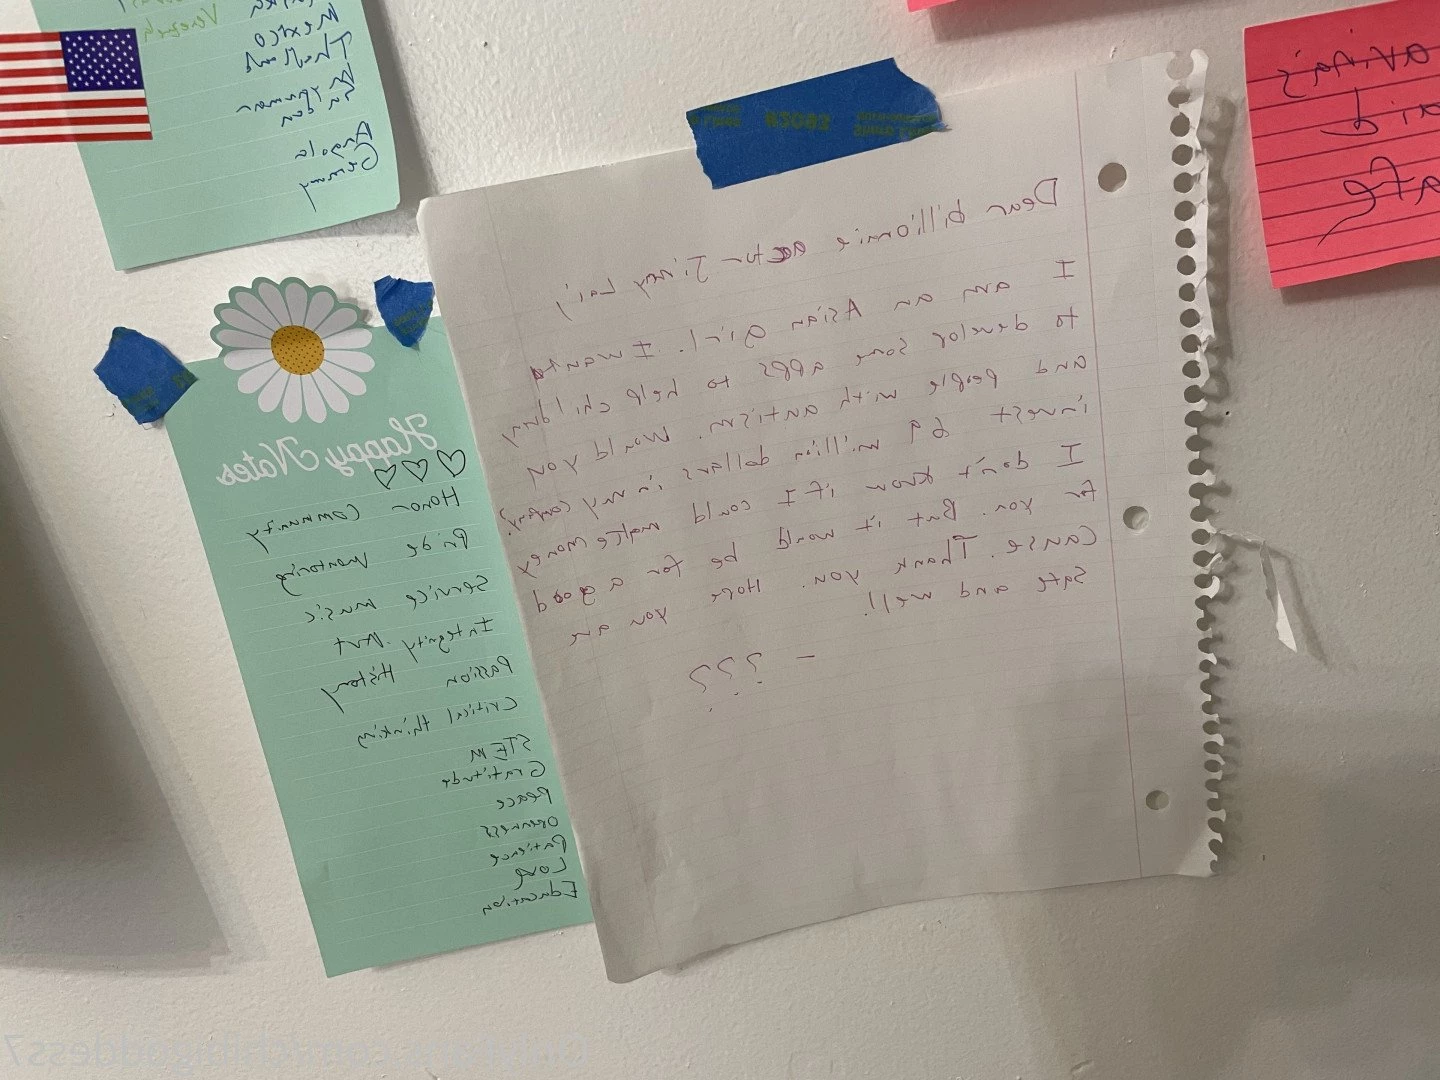 Mexico
Thailand
Myanmar
Angola
Germany
Dear billionaire actor Jimmy Lai,
I am an Asian girl. I want
to develop some apps to help children
and people with autism. Would you
invest 69 million dollars in my company?
I don't know if I could make money
for you. But it would be for a good
cause. Thank you. Hope you are
safe and well!
- ???
Happy Notes
Honor Community
Pride mentoring
Service music
Integrity Art
Passion History
Critical thinking
STEM
Gratitude
Peace
Openness
Patience
Love
Education
Onlyfans.com/chingoddess7